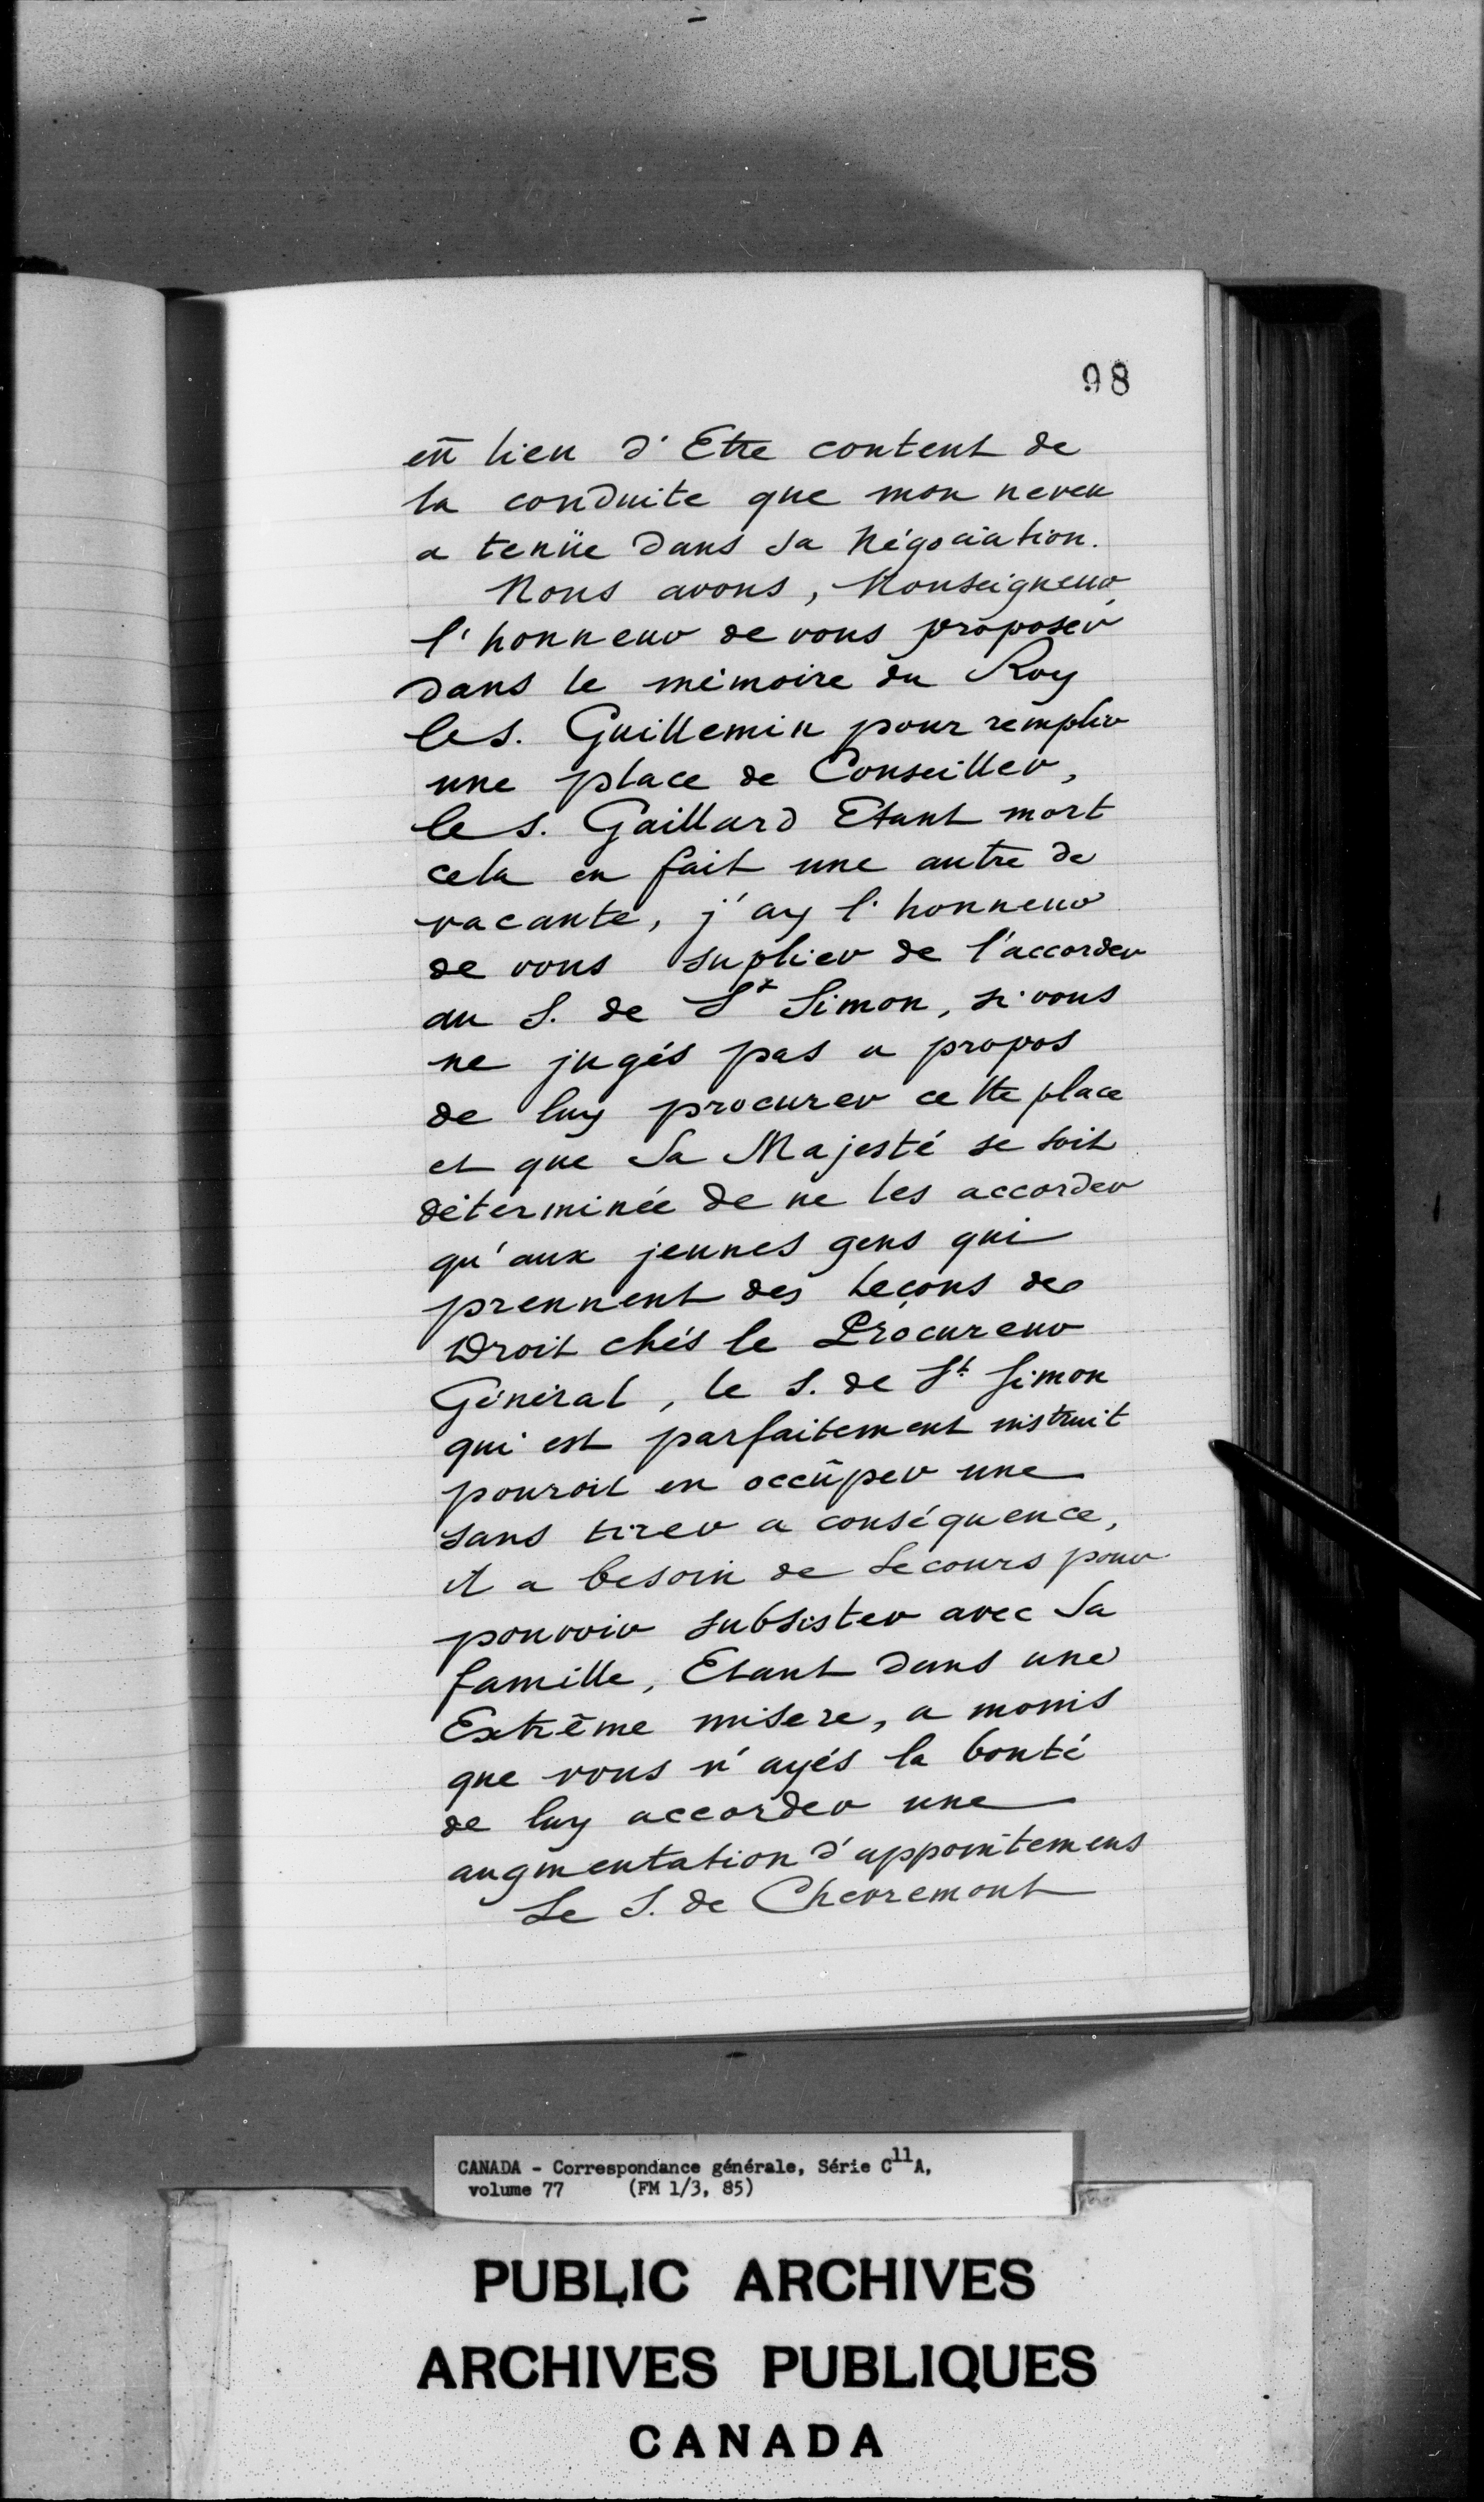 98
eü lieu d'Etre content de
la conduite que mon neveu
a tenüe dans sa Négociation.
Nous avons, Monseigneur,
l'honneur de vous proposer
dans le mémoire du Roy
le s. Guillemin pour remplir
une place de Conseiller,
le s. Gaillard Etant mort
cela en fait une autre de
vacante, j'ay l'honneur
de vous suplier de l'accorder
au S. de St Simon, si vous
ne jugés pas a propos
de luy procurer cette place
et que Sa Majesté se soit
déterminée de ne les accorder
qu'aux jeunes gens qui
prennent des Leçons de
Droit chés le Procureur
Général, le S. de St. Simon
qui est parfaitement instruit
pouroit en occüper une
sans tirer a conséquence,
il a besoin de Secours pour
pouvoir subsister avec Sa
famille, Etant dans une
Extrême misere, a moins
que vous n'ayés la bonté
de luy accorder une
augmentation d'appointemens
Le S. de Chevremont
CANADA - Correspondance générale, Série C11A,
volume 77 (FM 1/3, 85)
PUBLIC ARCHIVES
ARCHIVES PUBLIQUES
CANADA